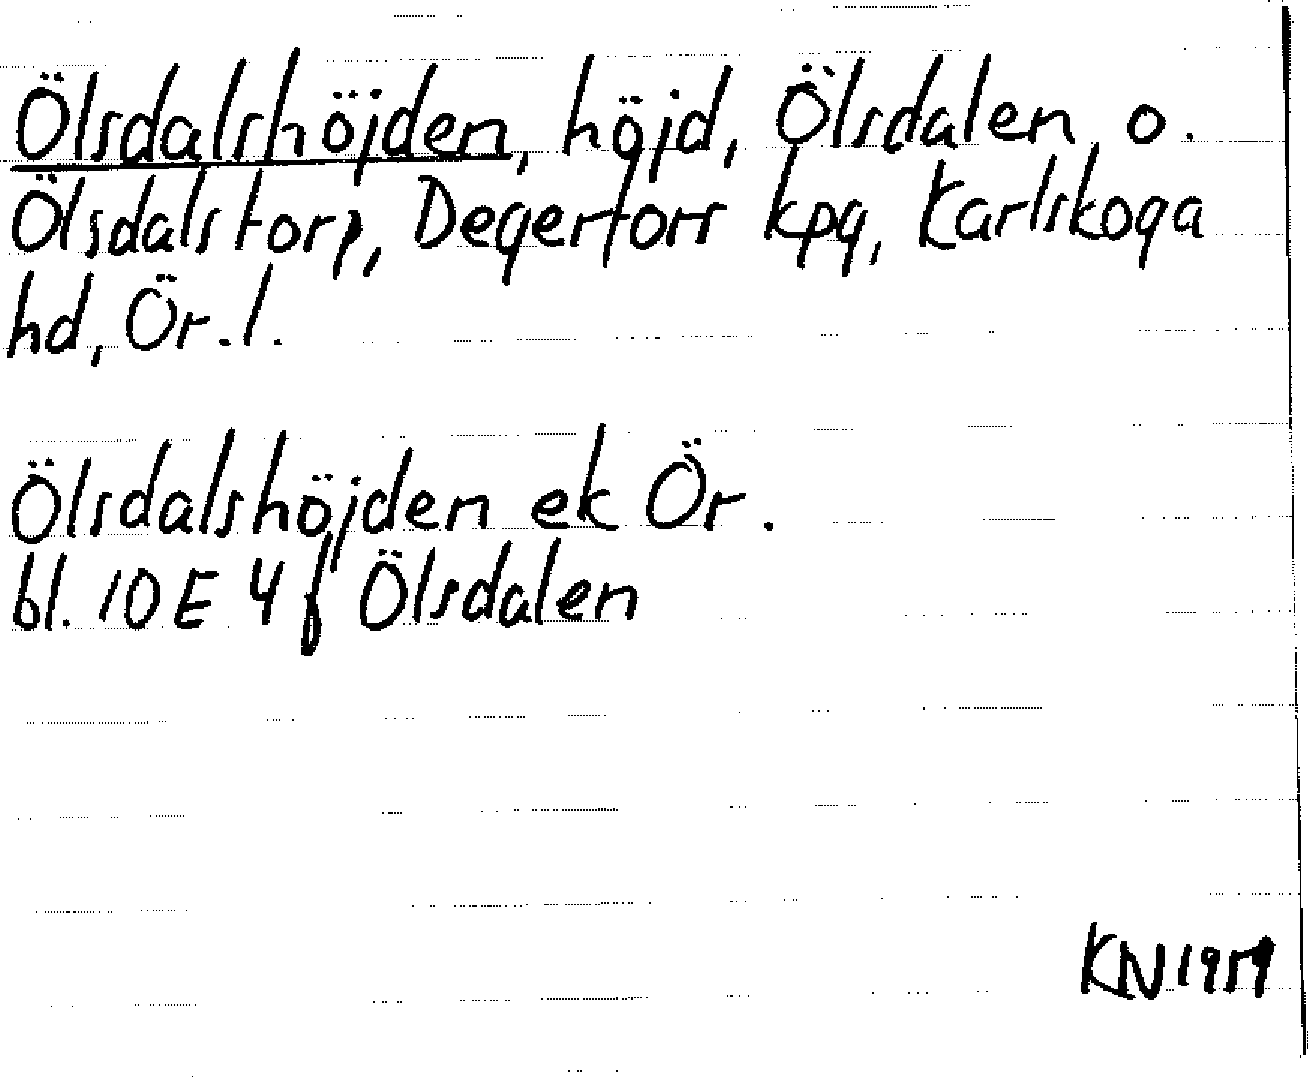 Ölsdalshöjden, höjd, Ölsdalen o.
Ölsdalstorp, Degerfors kpg, Karlskoga
hd, Ör. l.
Ölsdalshöjden ek Ör.
bl. 10 E 4 f Ölsdalen
KN 1959